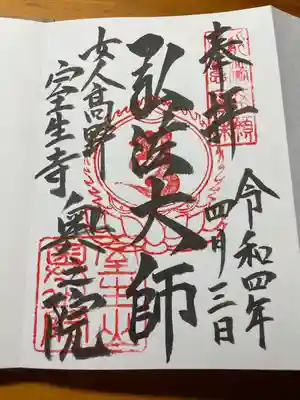 奉拝
令和四年
四月三日
弘法大師
女人高野
室生寺
奥之院